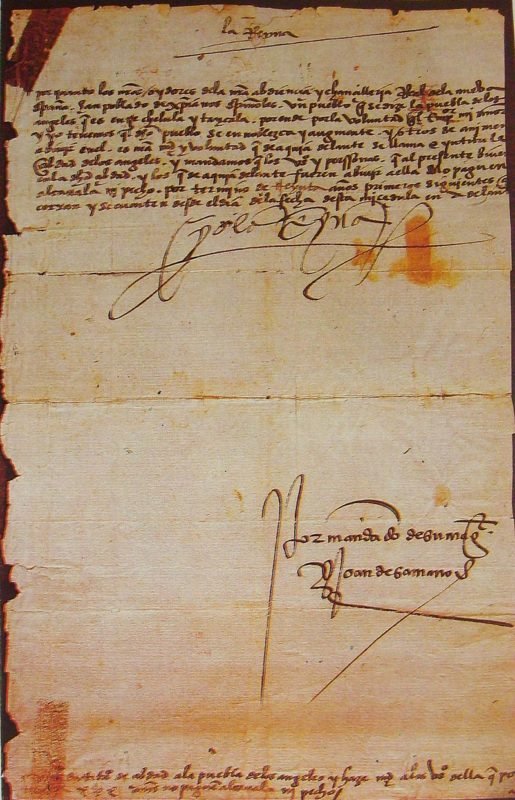 la Reyna
por quanto los nros oydores de la nra abdiencia y chancilleria Real de la nueva
españa. han poblado de xpianos españoles. Un pueblo q se dize la puebla de los
angeles q es en tre cholula y tascala. porende por la voluntad q
y yo tenemos q el dho pueblo se en noblezca y augmente. y otros de mi mer
es nra md y voluntad q de aqui adelante se llame e yntitule
cibdad de los angeles. y mandamos q los vos y personas. que al presente biuen
en la dha cibdad. y los q de aqui adelante fueren abiuir a ella no paguen
alcavala ni pecho. por termino de treynta años primeros siguientes q
corran y se cuenten desde el dia de la fecha desta mi cedula en adelante
yo la Reyna
Por mandado de su mag.
Joan de samano
titulo de cibdad a la puebla de los angeles y haze md a los vos della q por
XXX años no paguen alcavala ni pechos